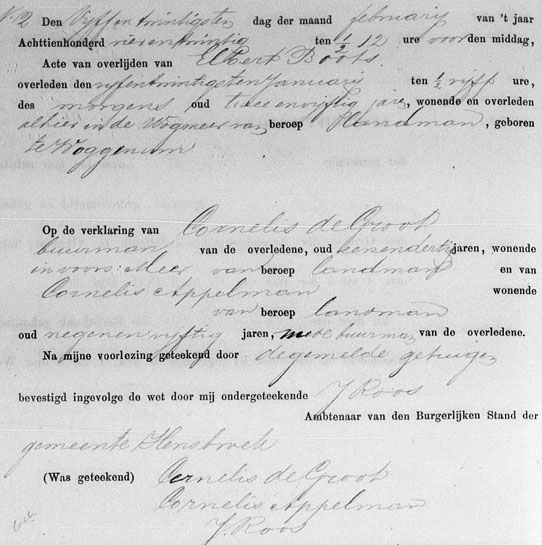 N. 2 Den Vyffentwintigsten dag der maand february van 't jaar
Achttienhonderd vierentwintig ten ½ 12 ure voor den middag,
Acte van overlijden van Elbert Boots.
overleden den vyfentwintigsten January ten ½ vyff ure,
des morgens oud twee envyftig jare, wonende en overleden
alhier in de Wogmeer van beroep Handman, geboren
te Woggenum
Op de verklaring van Cornelis de Groot
buurman van de overledene, oud eenendertig jaren, wonende
in voors: Meer van beroep landman en van
Cornelis Appelman wonende
van beroep landman
oud negenenvyftig jaren, mede buurman van de overledene.
Na mijne voorlezing geteekend door de gemelde getuigen
bevestigd ingevolge de wet door mij ondergeteekende J Roos
Ambtenaar van den Burgerlijken Stand der
gemeente Hensbroek
(Was geteekend) Cernelis de Groot
Cornelis Appelman
J. Roos